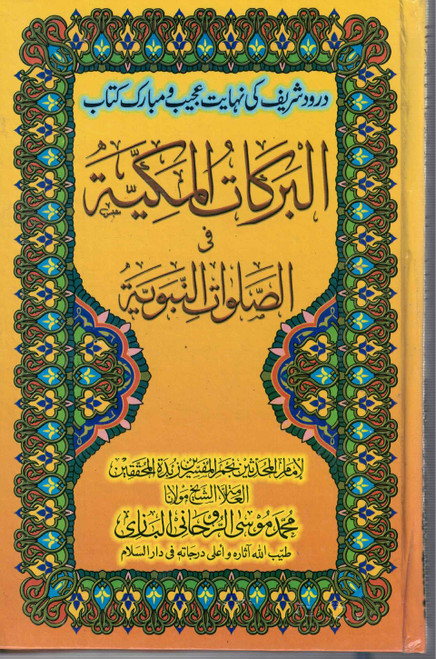 درود شریف کی نہایت عجیب و مبارک کتاب
البركات المكيّة
فى
الصّلوات النّبويّة
لإمام المحدثين نجم المفسرين زبدة المحققين
العلامة الشيخ مولانا
محمد موسى الروحاني البازي
طيّب الله آثاره وأعلى درجاته في دار السلام